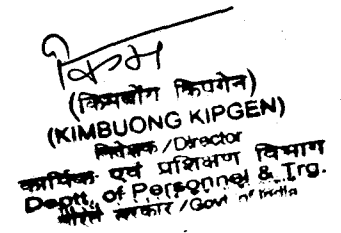 किम
(किमबोंग किपगेन)
(KIMBUONG KIPGEN)
निदेशक / Director
कार्मिक एवं प्रशिक्षण विभाग
Deptt. of Personnel & Trg.
भारत सरकार / Govt of India